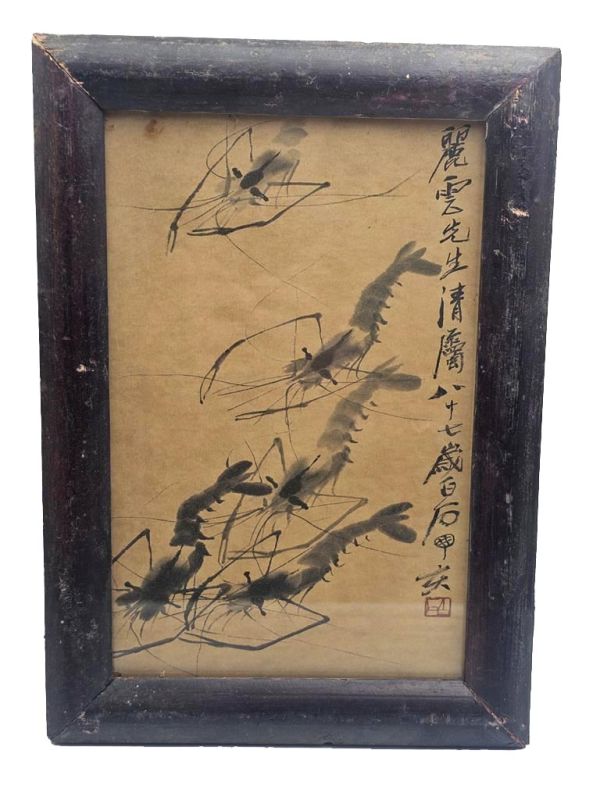 麗雲先生清屬八十七歲白石甲寅